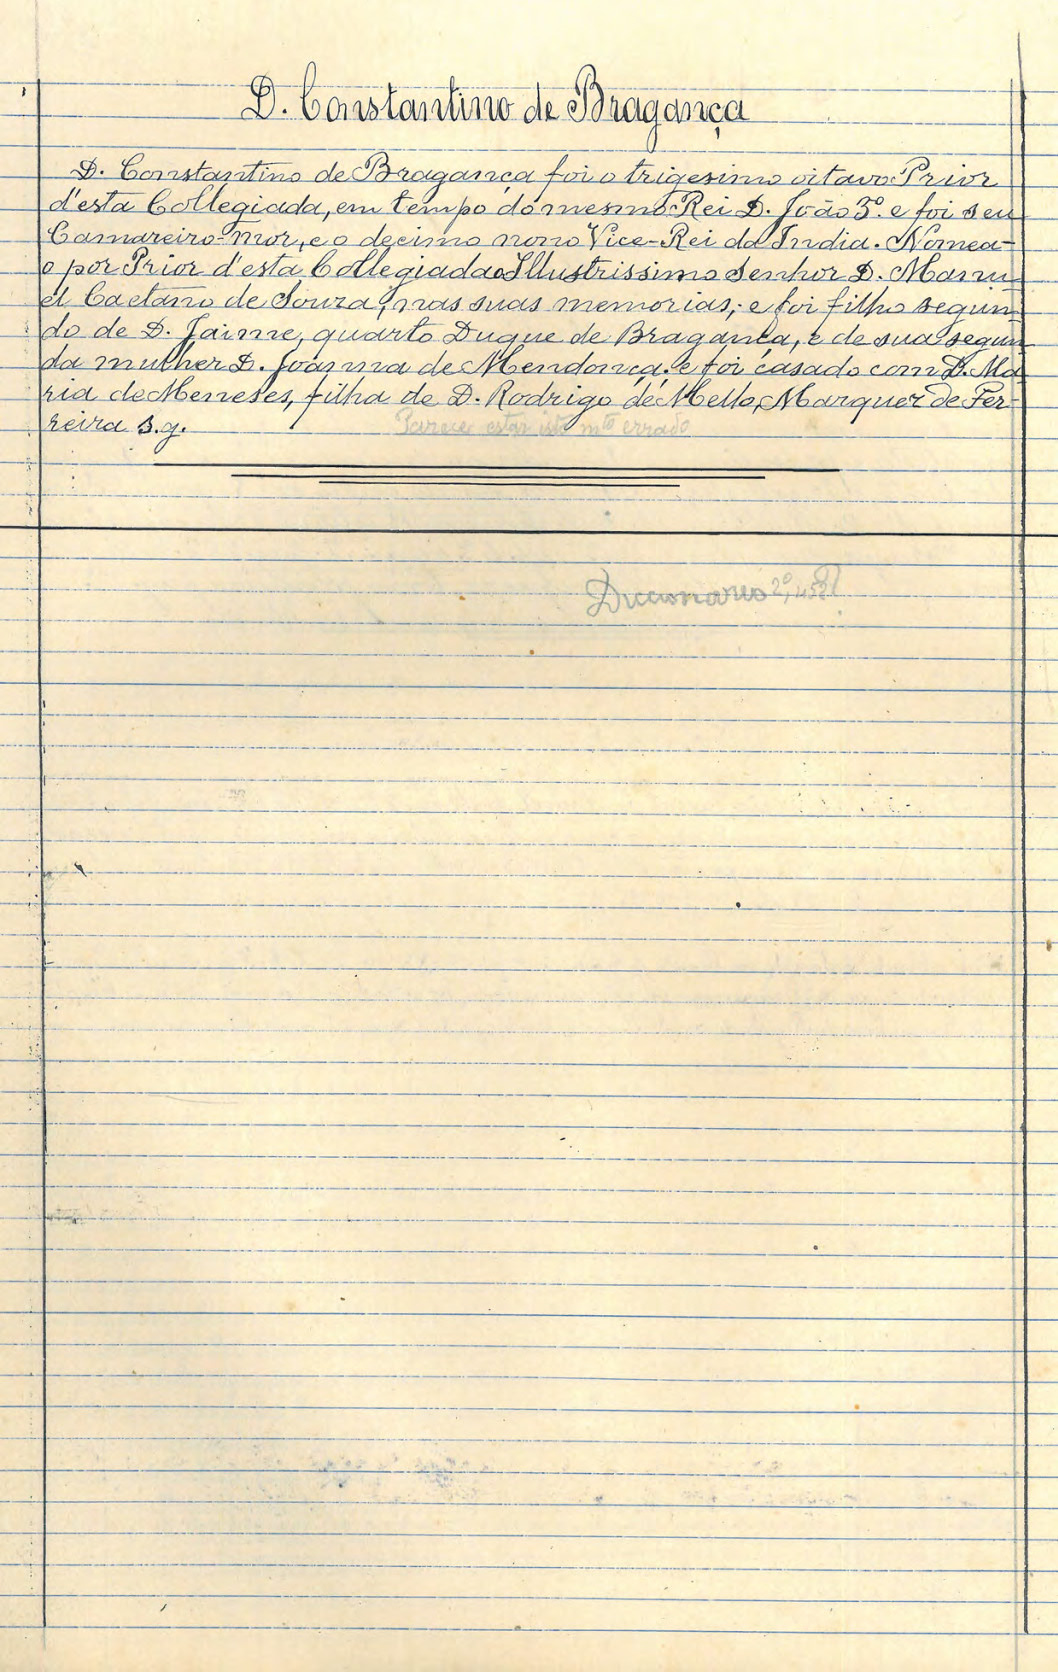 D. Constantino de Bragança
D. Constantino de Bragança foi o trigesimo oitavo Prior
d'esta Collegiada, em tempo do mesmo Rei D. João 3º. e foi seu
Camareiro-mor, e o decimo nono Vice-Rei da India. Nomea-
o por Prior d'esta Collegiada o Illustrissimo Senhor D. Manu-
el Caetano de Souza, nas suas memorias; e foi filho segun-
do de D. Jaime, quarto Duque de Bragança, e de sua segun
da mulher D. Joanna de Mendonça. e foi casado com D. Ma
ria de Meneses, filha de D. Rodrigo de Mello, Marquez de Fer-
reira s.g.
Parece estar isto mto errado
Diccionario 2º, 452